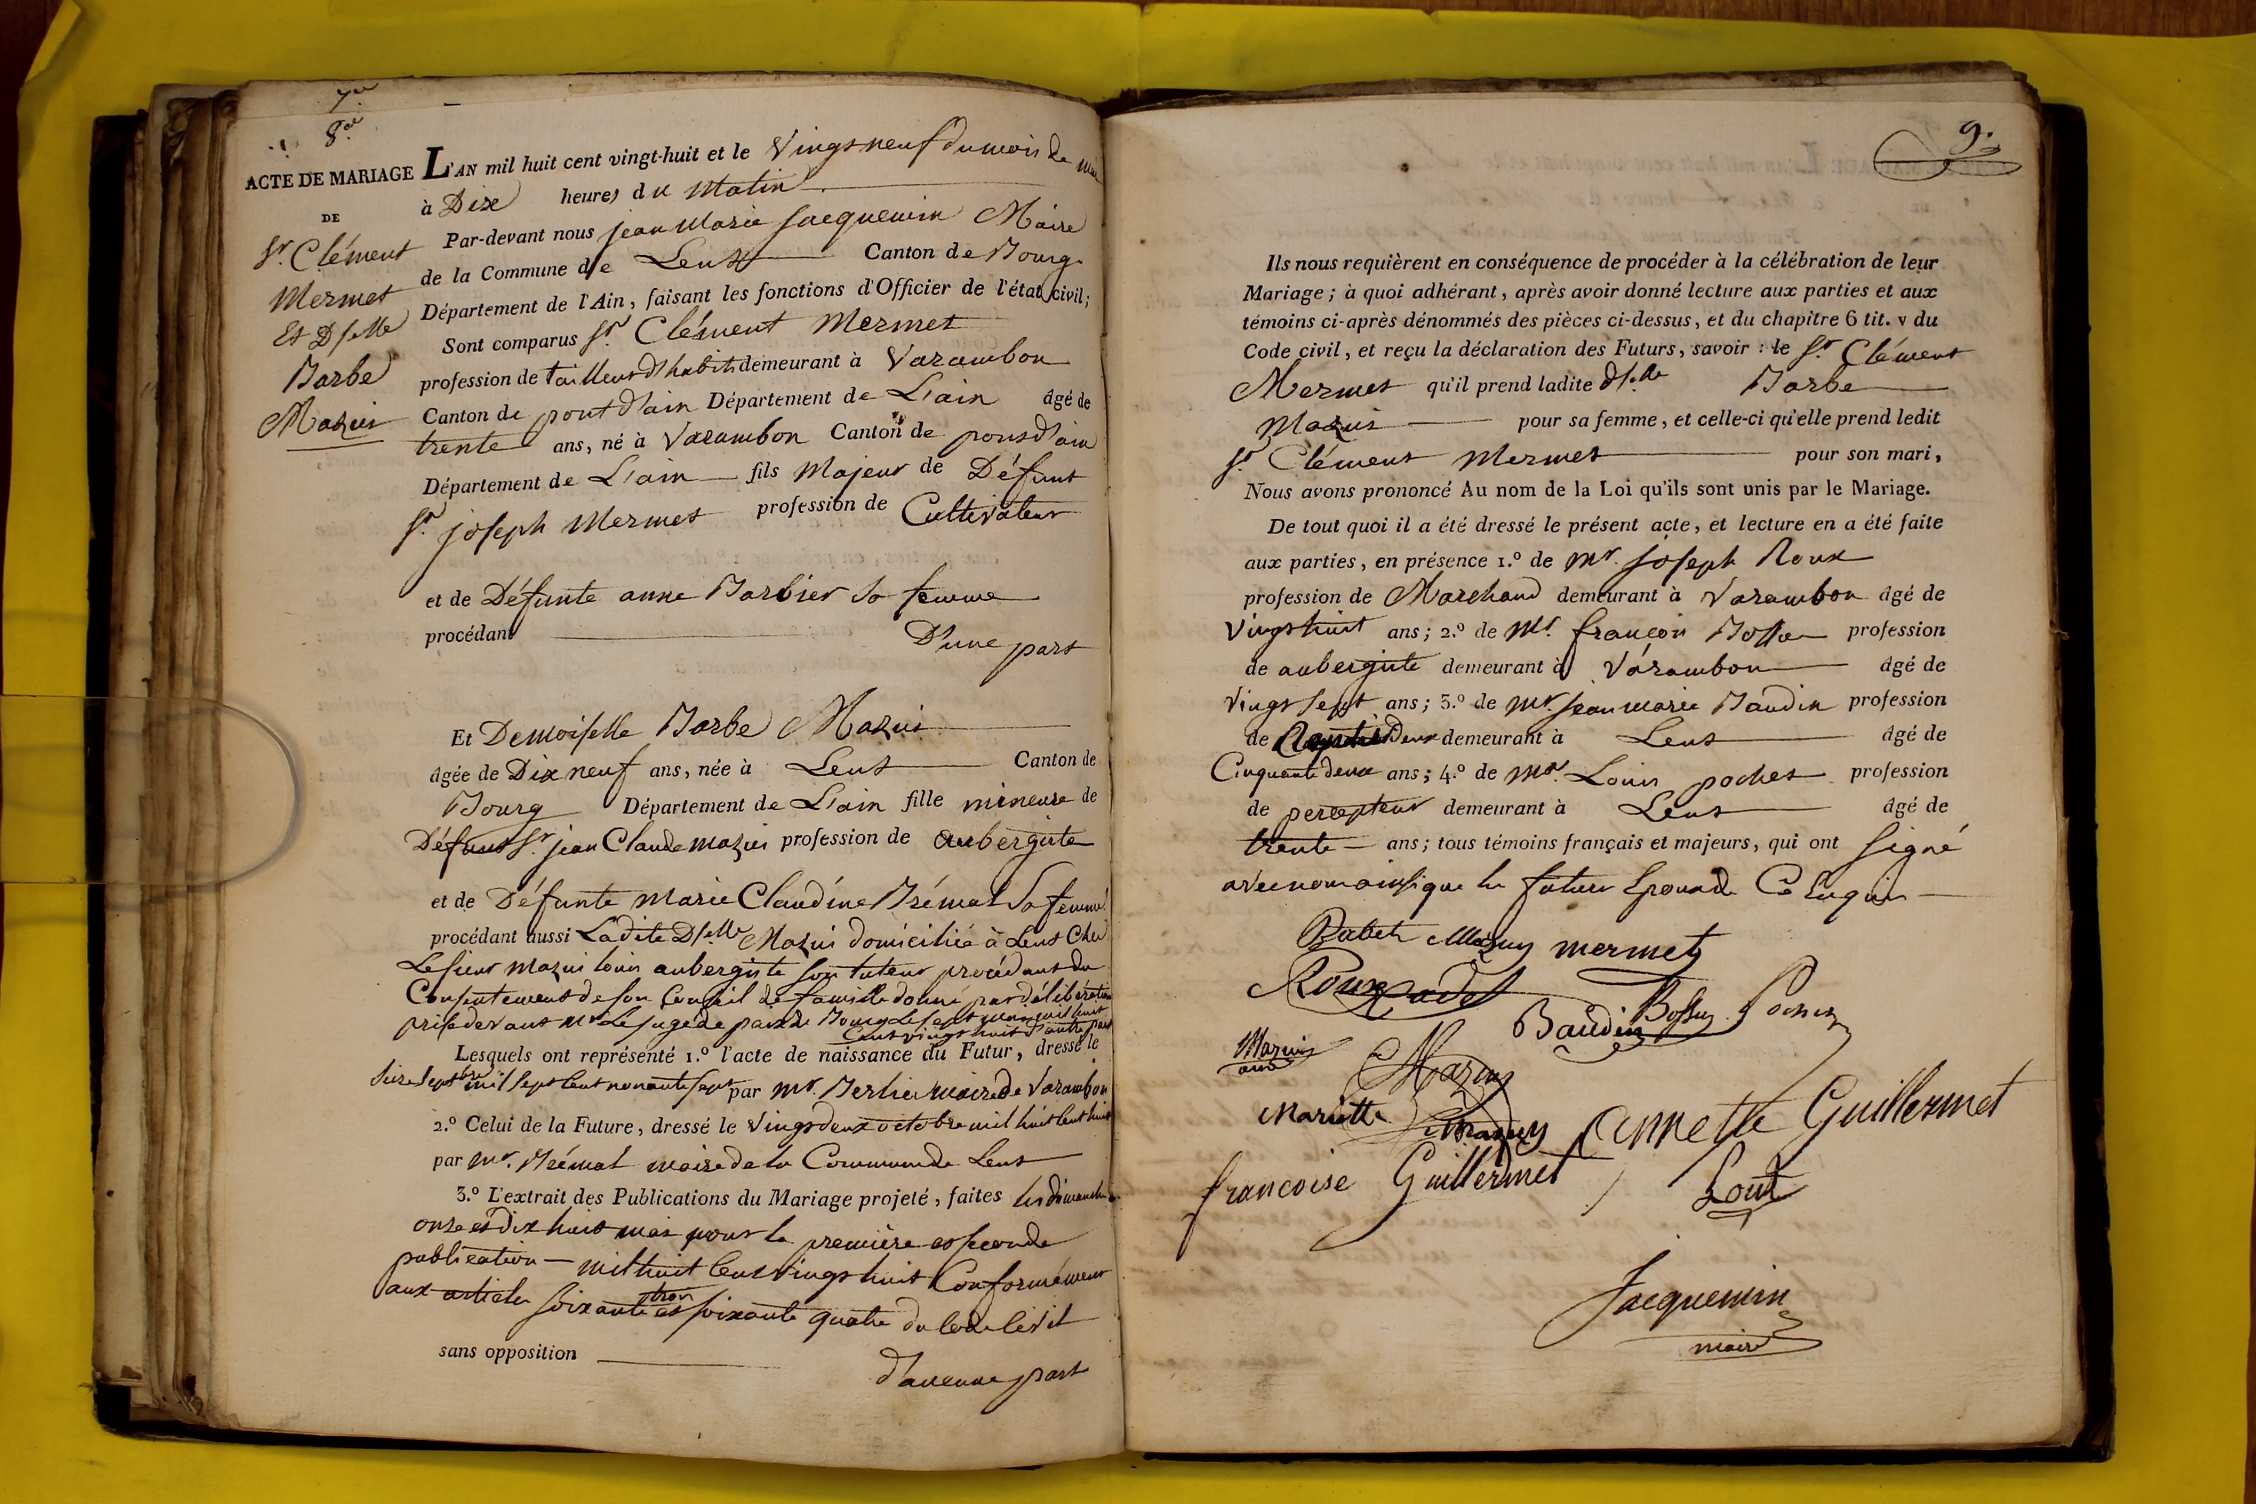 7.e
8.e
ACTE DE MARIAGE
DE
Sr. Clément
Mermet
Et Dselle
Barbe
Mazuis
L'AN mil huit cent vingt-huit et le Vingt neuf du mois de mai
à Dix heures du Matin
Par-devant nous jean Marie Jacquemin Maire
de la Commune de Lent Canton de Bourg
Département de l'Ain, faisant les fonctions d'Officier de l'état civil;
Sont comparus Sr. Clément Mermet
profession de tailleur d'habits demeurant à Varambon
Canton de pont d'ain Département de L'ain âgé de
trente ans, né à Varambon Canton de pont d'ain
Département de L'ain fils Majeur de Défunt
Sr. joseph Mermet profession de Cultivateur
et de Défunte anne Barbier sa femme
procédant D'une part
Et Demoiselle Barbe Mazuis
âgée de Dix neuf ans, née à Lent Canton de
Bourg Département de L'ain fille mineure de
Défunt Sr. jean Claude mazuis profession de aubergiste
et de Défunte Marie Claudine Brémal Sa femme
procédant aussi Ladite Dselle Mazuis domiciliée à Lent Chez
Le sieur mazuis louis aubergiste son tuteur procédant du
Consentement de son Conseil de famille donné par délibération
prise devant mr Le juge de paix de Bourg Le sept mai mil huit
Cent vingt huit d'autre part
Lesquels ont représenté 1.º l'acte de naissance du Futur, dressé le
Seize Septbre mil sept cent nonante sept par mr. Berlier maire de Varambon
2.º Celui de la Future, dressé le Vingt deux octobre mil huit cent huit
par mr. Brémal maire de la Commune de Lent
3.º L'extrait des Publications du Mariage projeté, faites les dimanches
onze et Dix huit mai pour la première et seconde
publication — mil huit Cent Vingt huit Conformément
aux articles soixante trois et soixante quatre du Code Civil
sans opposition
d'aucune part
9.
Ils nous requièrent en conséquence de procéder à la célébration de leur
Mariage; à quoi adhérant, après avoir donné lecture aux parties et aux
témoins ci-après dénommés des pièces ci-dessus, et du chapitre 6 tit. v du
Code civil, et reçu la déclaration des Futurs, savoir : le Sr. Clément
Mermet qu'il prend ladite dselle Barbe
Mazuis pour sa femme, et celle-ci qu'elle prend ledit
Sr. Clément Mermet pour son mari,
Nous avons prononcé Au nom de la Loi qu'ils sont unis par le Mariage.
De tout quoi il a été dressé le présent acte, et lecture en a été faite
aux parties, en présence 1.º de mr. Joseph Roux
profession de Marchand demeurant à Varambon âgé de
Vingt huit ans; 2.º de Mr. françois Bossu profession
de aubergiste demeurant à Varambon âgé de
Vingt sept ans; 3.º de mr. Jean marie Baudin profession
de demeurant à Lent âgé de
Cinquante deux ans; 4.º de mr. Louis pochet profession
de percepteur demeurant à Lent âgé de
trente ans; tous témoins français et majeurs, qui ont signé
avec nous ainsi que les futurs Epoux de Ce Enquis
Babet Mazuy mermet
Roux cadet
Baudin Bossu Pochet
Mazuis
Mazuy
Mariette Mazuy Annette Guillermet
francoise Guillermet
Jacquemin
maire